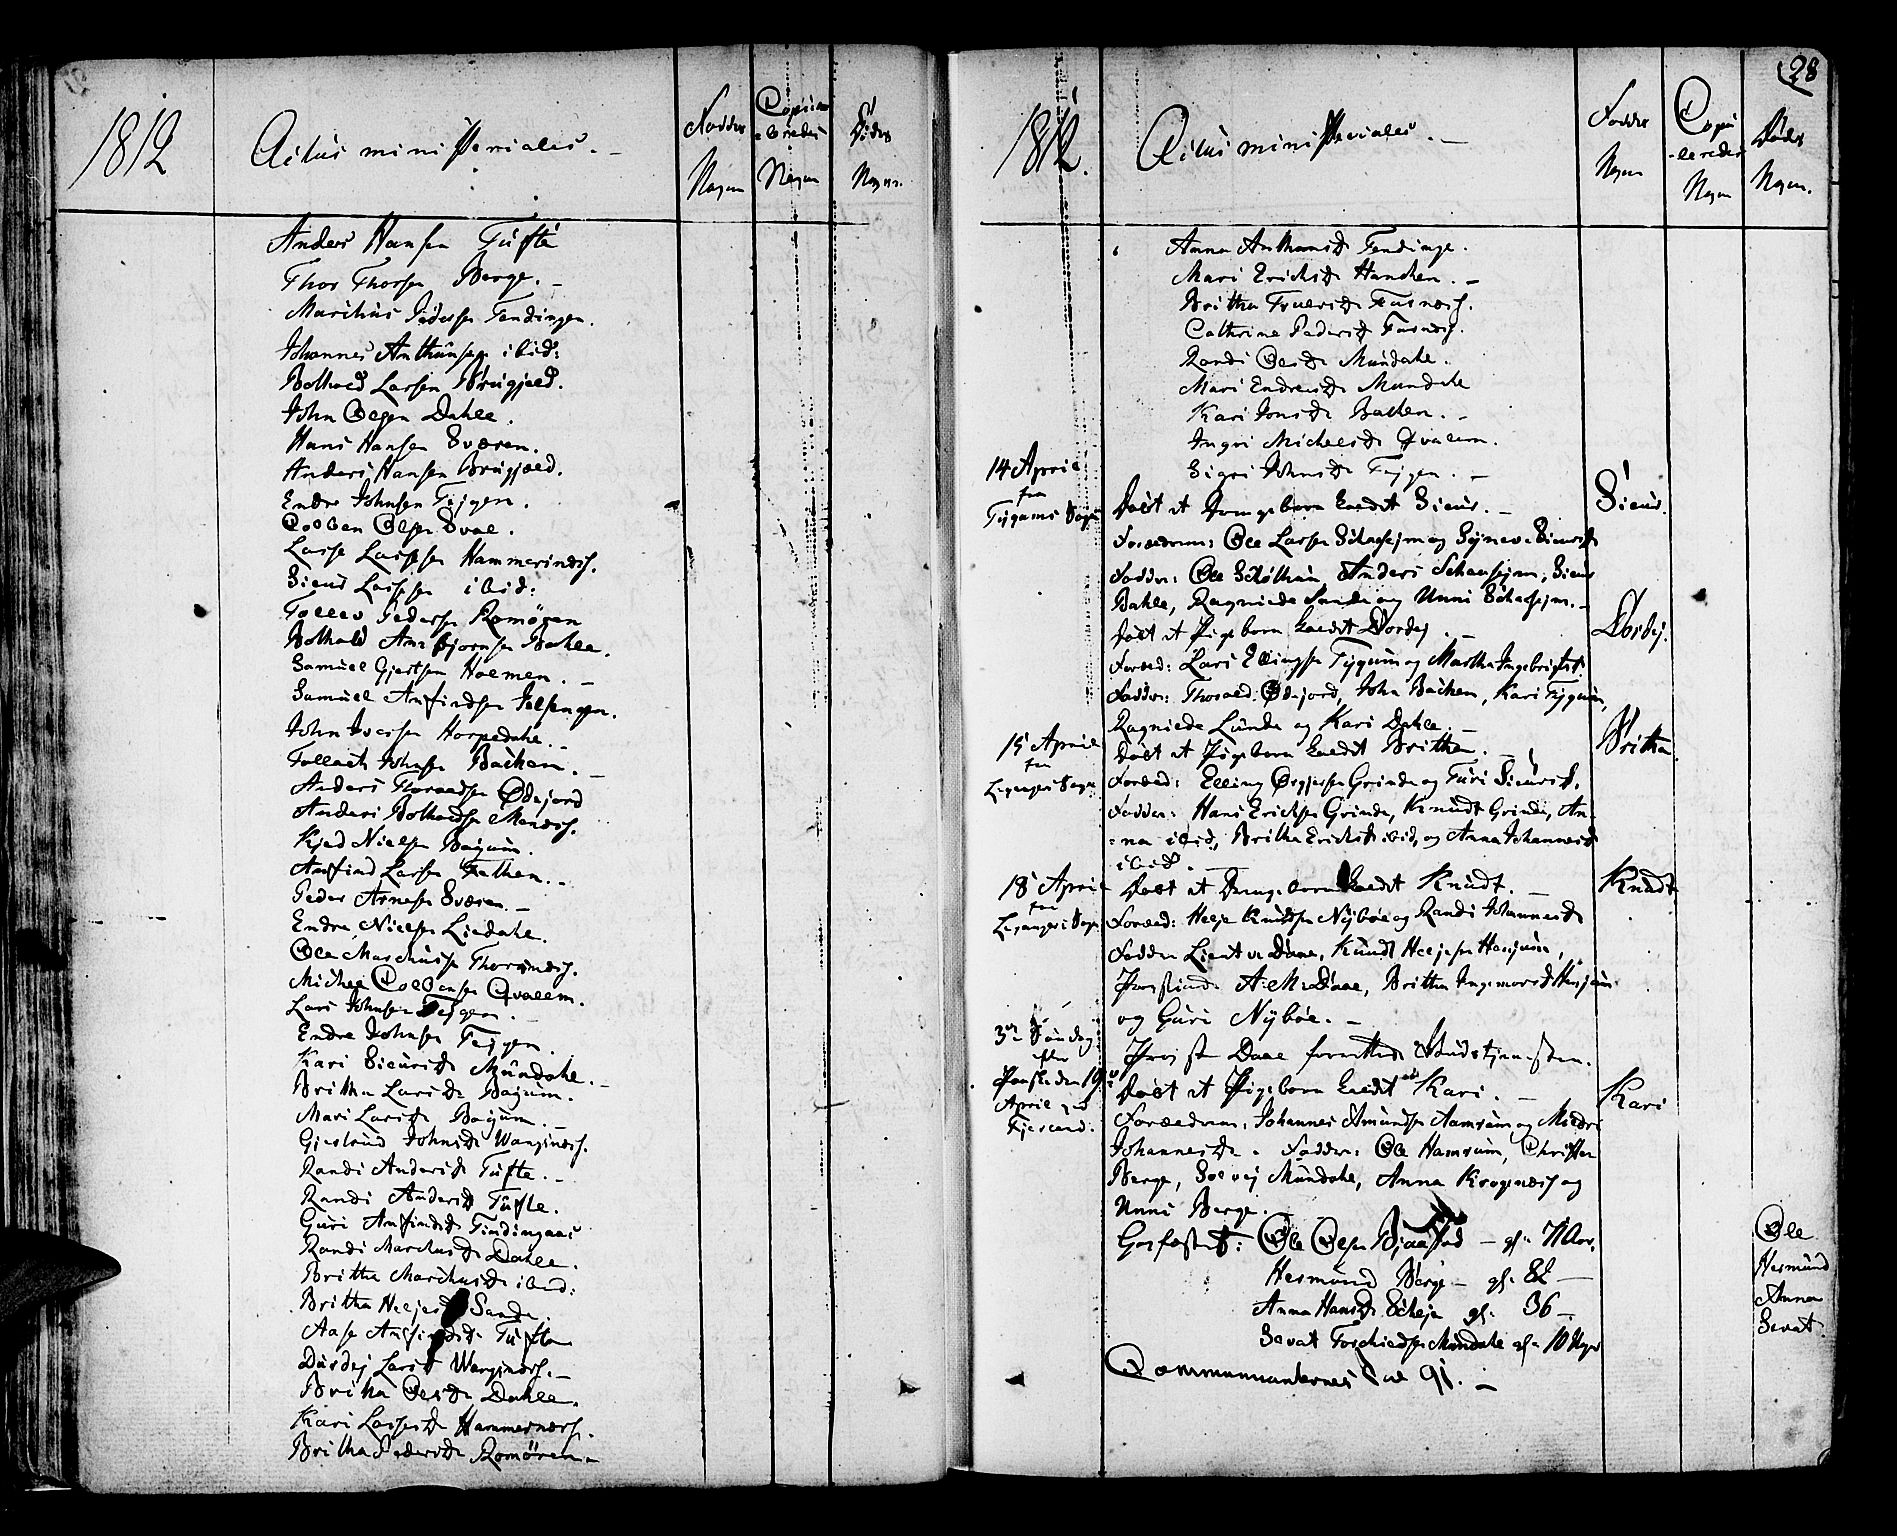 1812
Actus ministeriales. -
Fødder
Nafn
Copu
-lerede
Nafn
Døder
Nafn.
Anders Hansen Tufte
Thor Thorsen Berge. -
Marchus Pedersen Tendingen.
Johannes Anthunsen ibid:
Botholed Larsen
John Olsen Dahle.
Hans Hansen Sværen.
Anders Hansen
Endre Johnsen Fejgen.
Colben Olsen Svae.
Lasse Lassesen Hammersnæss.
Siur Lassesen ibid:
Tollev Pedersen Romøren
Botholed Arnbjornsen Bahle.
Samuel Gjertsen Holmen. -
Samuel Anfindsen
John Iversen Horpedahl. -
Tollach Johnsen Bachen. -
Anders Thoraldsen Ødejord
Anders Botholsen Menæss.
Kjed Nielsen Bøyum.
Anfind Larsen -
Peder Arnesen Sværen. -
Endre Nielsen Liedahl.
Ole Marchussen Thorsnæss.
Michel Colbensen Qvalem.
Lars Johnsen Fejgen. -
Endre Johnsen Fejgen.
Kari Siursd. Mundahl. -
Britha Larsd. Bøyum.
Mari Larsd. Bøyum. -
Giertrud Johnsd. Wangsnæss.
Randi Andersd. Tufte. -
Randi Andersd. Tufte.
Guri Anfindsd.
Randi Marchusd. Dahle.
Britha Marchusd. ibid:
Britha Heljesd. Sande.
Aase Anfindsd. Tufte
Dordej Larsd. Wangsnæss. -
Britha Olsd. Dahle.
Kari Lassesd. Hammersnæss.
Britha Pedersd. Romøren. -
28
1812.
Actus ministeriales. -
Fødder
Nafn
Copu
-lerede
Nafn
Døder
Nafn.
Anna Anthunsd. Tendinge.
Mari Erichsd. Hamchen. -
Britha Truelsd. Tusnæss.
Cathrine Pedersd. Tusnæss.
Randi Olsd. Mundahl.
Mari Endresd. Mundahl
Kari Jonsd. Bachen. -
Ingri Michelsd. Qvalem.
Sigri Johnsd. Fejgen. -
14 April
fra
Tjugums Sogn
Døbt et Drengebarn kaldet Siur. -
Siur.
Forældrene: Ole Larsen og Synneve Siursd.
Faddere: Ole Anders Siur
Bahle, Ragnilde Lunde og Unni -
Døbt et Pigebarn kaldet Dordej. -
Dordej.
Foræld: Lars Ellingsen Tjugum og Martha Ingebrigtsd.
Faddere: Thorald Ødejord, John Bachen, Kari Tjugum,
Ragnilde Lunde og Kari Dahle. -
15 April
fra
Leganger Sogn
Døbt et Pigebarn kaldet Britha. -
Britha
Foræld: Elling Ørjesen Grinde og Turi Siursd.
Faddere: Hans Erichsen Grinde, Knudt Grinde, An-
-na ibid, Britha Erichsd. ibid, og Anna Johannesd.
ibid. -
18 April
fra
Leganger Sogn
Døbt et Drengebarn kaldet Knudt. -
Knudt
Foræld: Helje Knudsen Nybøe og Randi Johannesd.
Faddere Lieutn Daae, Knudt Heljesen Henjum,
A: M: Daae, Britha Ingemarsd. Henjum
og Guri Nybøe. -
3de Søndag
efter
Paaske den 19de
April
Fjerland.
Provst Daae forrettede Gudstjenesten.
Døbt et Pigebarn kaldet Kari. -
Kari
Forældrene: Johannes Amundsen Hamrum og
Johannesd. Faddere: Ole Hamrum, Christen
Berge, Solvej Mundahl, Anna Krogenæss og
Unni Berge.
Gorfæstet: Ole Olsen Bjaastad - gl. 71 Aar.
Ole
Hermund Berge - gl. 82 -
Hermund
Anna Hansd. Scheje gl. 36 -
Anna
Sevat Torchildsen Mundahl gl. 10 Uger
Sevat
Communicanternes Tal 91. -